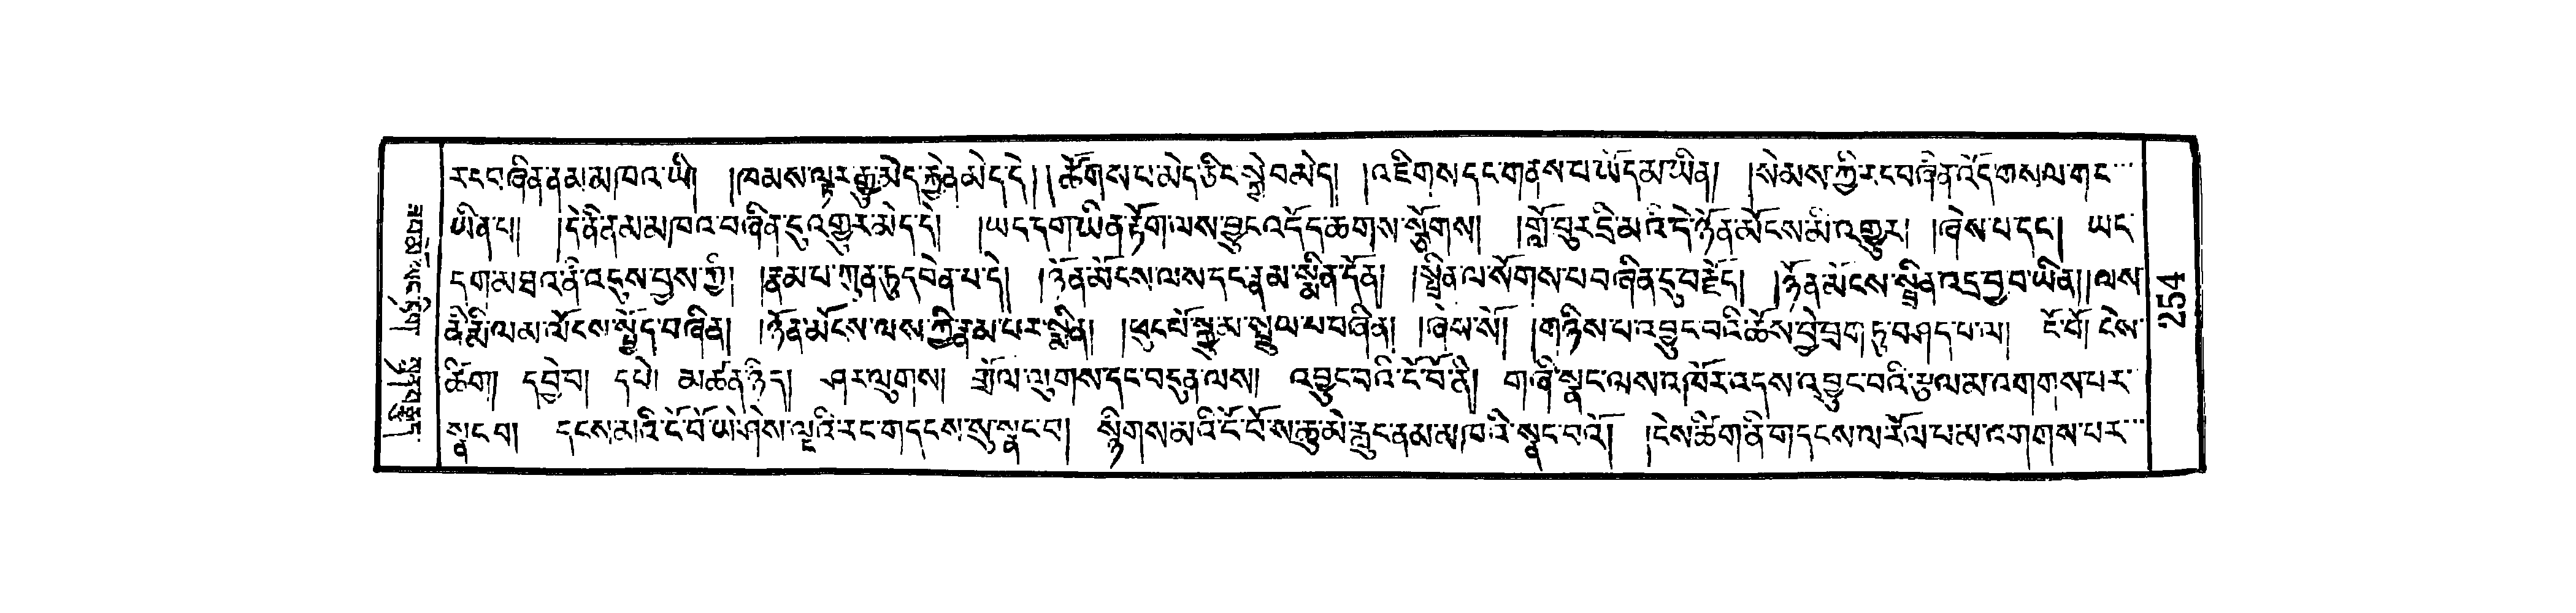 རང་བཞིན་ནམ་མཁའ་ཡི། །ཁམས་ལྟར་རྒྱུ་མེད་རྐྱེན་མེད་དེ། །ཚོགས་པ་མེད་ཅིང་སྐྱེ་བ་མེད། །འཇིག་དང་གནས་པ་ཡོད་མ་ཡིན། །སེམས་ཀྱི་རང་བཞིན་འོད་གསལ་གང་
ཡིན་པ། །དེ་ནི་ནམ་མཁའ་བཞིན་དུ་འགྱུར་མེད་དེ། །ཡང་དག་མིན་རྟོག་ལས་བྱུང་འདོད་ཆགས་སྩོགས། །གློ་བུར་དྲི་མའི་དེ་ཉོན་མོངས་མི་འགྱུར། །ཞེས་པ་དང་། ཡང་
དག་མཐའ་ནི་འདུས་བྱས་ཀྱི། །རྣམ་པ་ཀུན་ཏུ་དབེན་པ་དེ། །ཉོན་མོངས་ལས་དང་རྣམ་སྨིན་དོན། །སྤྲིན་ལ་སོགས་པ་བཞིན་དུ་བརྗོད། །ཉོན་མོངས་སྤྲིན་འདྲ་བྱ་བ་ཡིན། །ལས་
ནི་རྨི་ལམ་ལོངས་སྤྱོད་བཞིན། །ཉོན་མོངས་ལས་ཀྱི་རྣམ་པར་སྨིན། །ཕུང་པོ་སྒྱུ་མ་སྤྲུལ་པ་བཞིན། །ཞེས་སོ། །གཉིས་པ་འབྱུང་བའི་ཆོས་བྱེ་བྲག་ཏུ་བཤད་པ་ལ། ངོ་བོ། ངེས་
ཚིག དབྱེ་བ། དཔེ། མཚན་ཉིད། ཤར་ལུགས། གྲོལ་ལུགས་དང་བདུན་ལས། འབྱུང་བའི་ངོ་བོ་ནི། གཞི་སྣང་ལས་འཁོར་འདས་འབྱུང་བའི་རྩལ་མ་འགགས་པར་
སྣང་བ། དྭངས་མའི་ངོ་བོ་ཡེ་ཤེས་ལྔའི་རང་གདངས་སུ་སྣང་བ། སྙིགས་མའི་ངོ་བོ་ས་ཆུ་མེ་རླུང་ནམ་མཁའི་སྣང་བའོ། །ངེས་ཚིག་ནི་གདངས་ལ་རོལ་པ་མ་འགགས་པར་